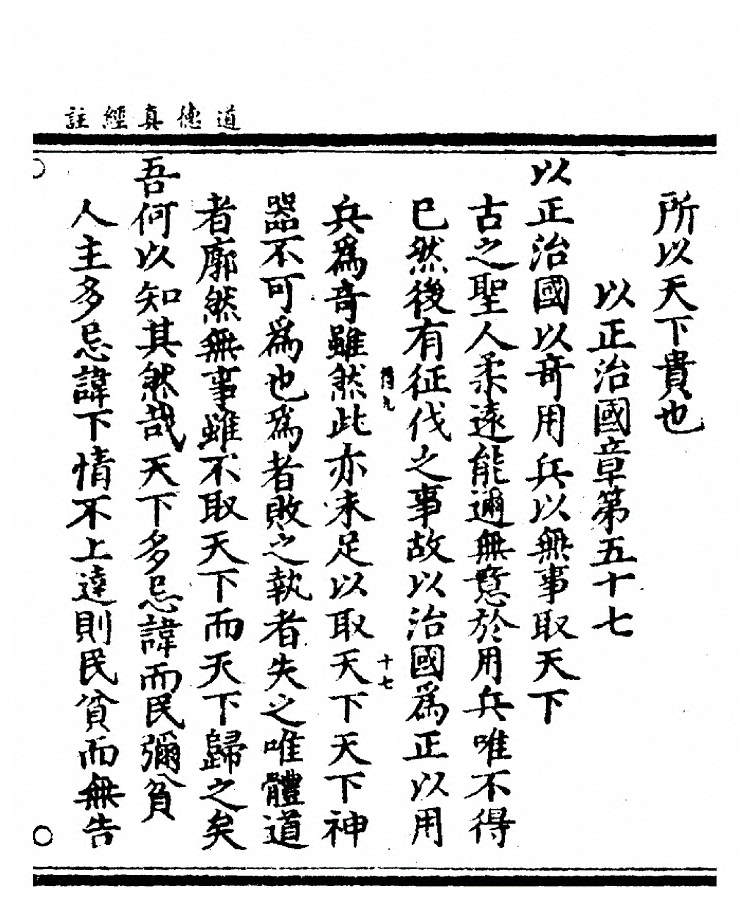 道德真經註
所以天下貴也
以正治國章第五十七
以正治國以奇用兵以無事取天下
古之聖人柔遠能邇無意於用兵唯不得
已然後有征伐之事故以治國為正以用
兵為奇雖然此亦未足以取天下天下神
器不可為也為者敗之執者失之唯體道
者廓然無事雖不取天下而天下歸之矣
吾何以知其然哉天下多忌諱而民彌貧
人主多忌諱下情不上達則民貧而無告
十七